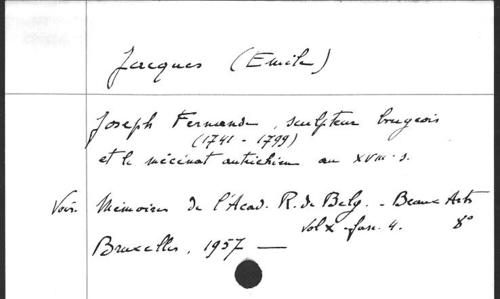 Jacques (Emile)
Joseph Fernande, sculpteur brugeois
(1741 - 1799)
et le mécénat autrichien au XVIII s.
Voir. Mémoires de l'Acad. R. de Belg. - Beaux Arts
vol X - fasc. 4. 8°
Bruxelles, 1957 —